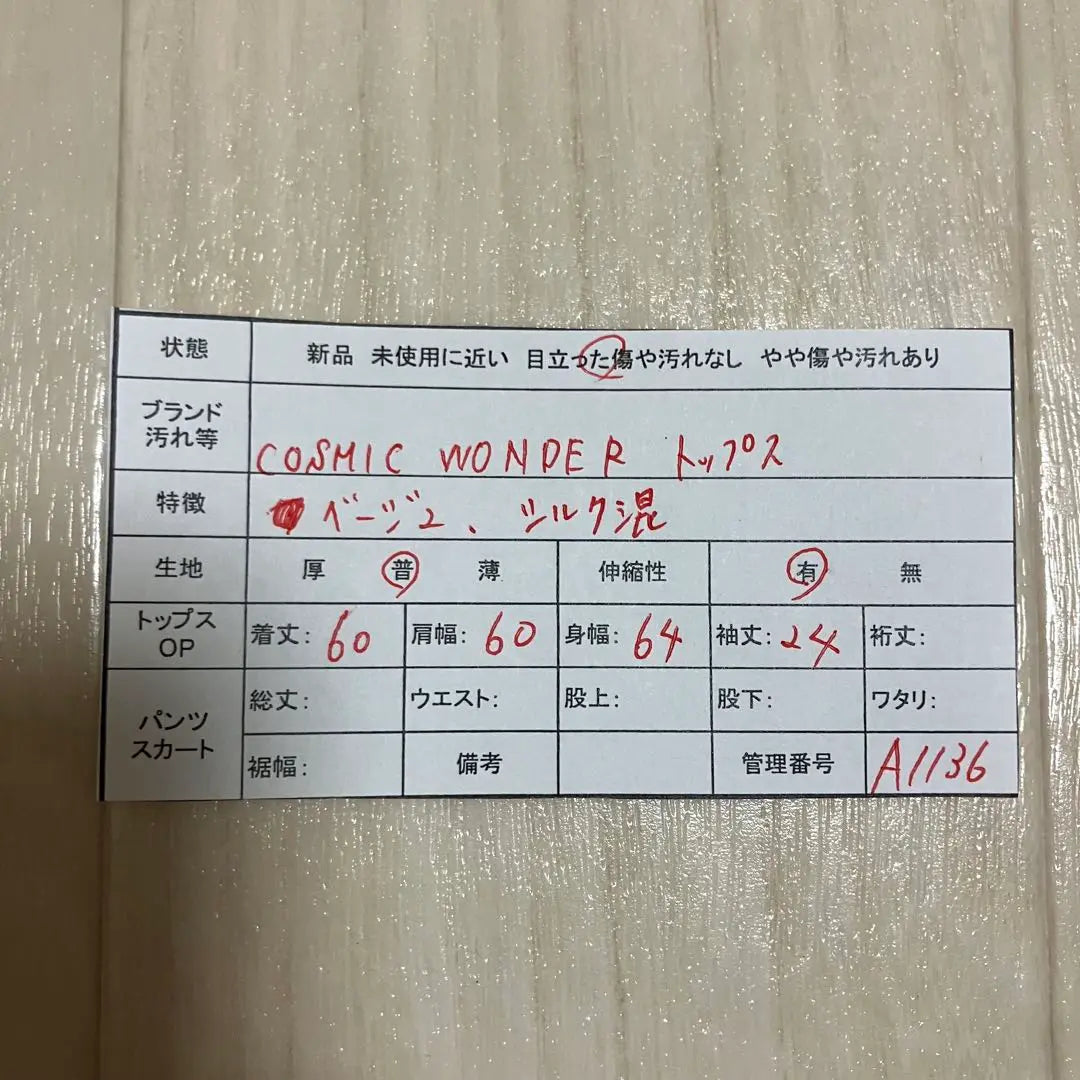 状態 新品 未使用に近い 目立った傷や汚れなし やや傷や汚れあり
ブランド
汚れ等
COSMIC WONDER トップス
特徴 ベージュ、シルク混
生地 厚 普 薄 伸縮性 有 無
トップス
OP
着丈: 60 肩幅: 60 身幅: 64 袖丈: 24 裄丈:
パンツ
スカート
総丈: ウエスト: 股上: 股下: ワタリ:
裾幅: 備考 管理番号 A1136